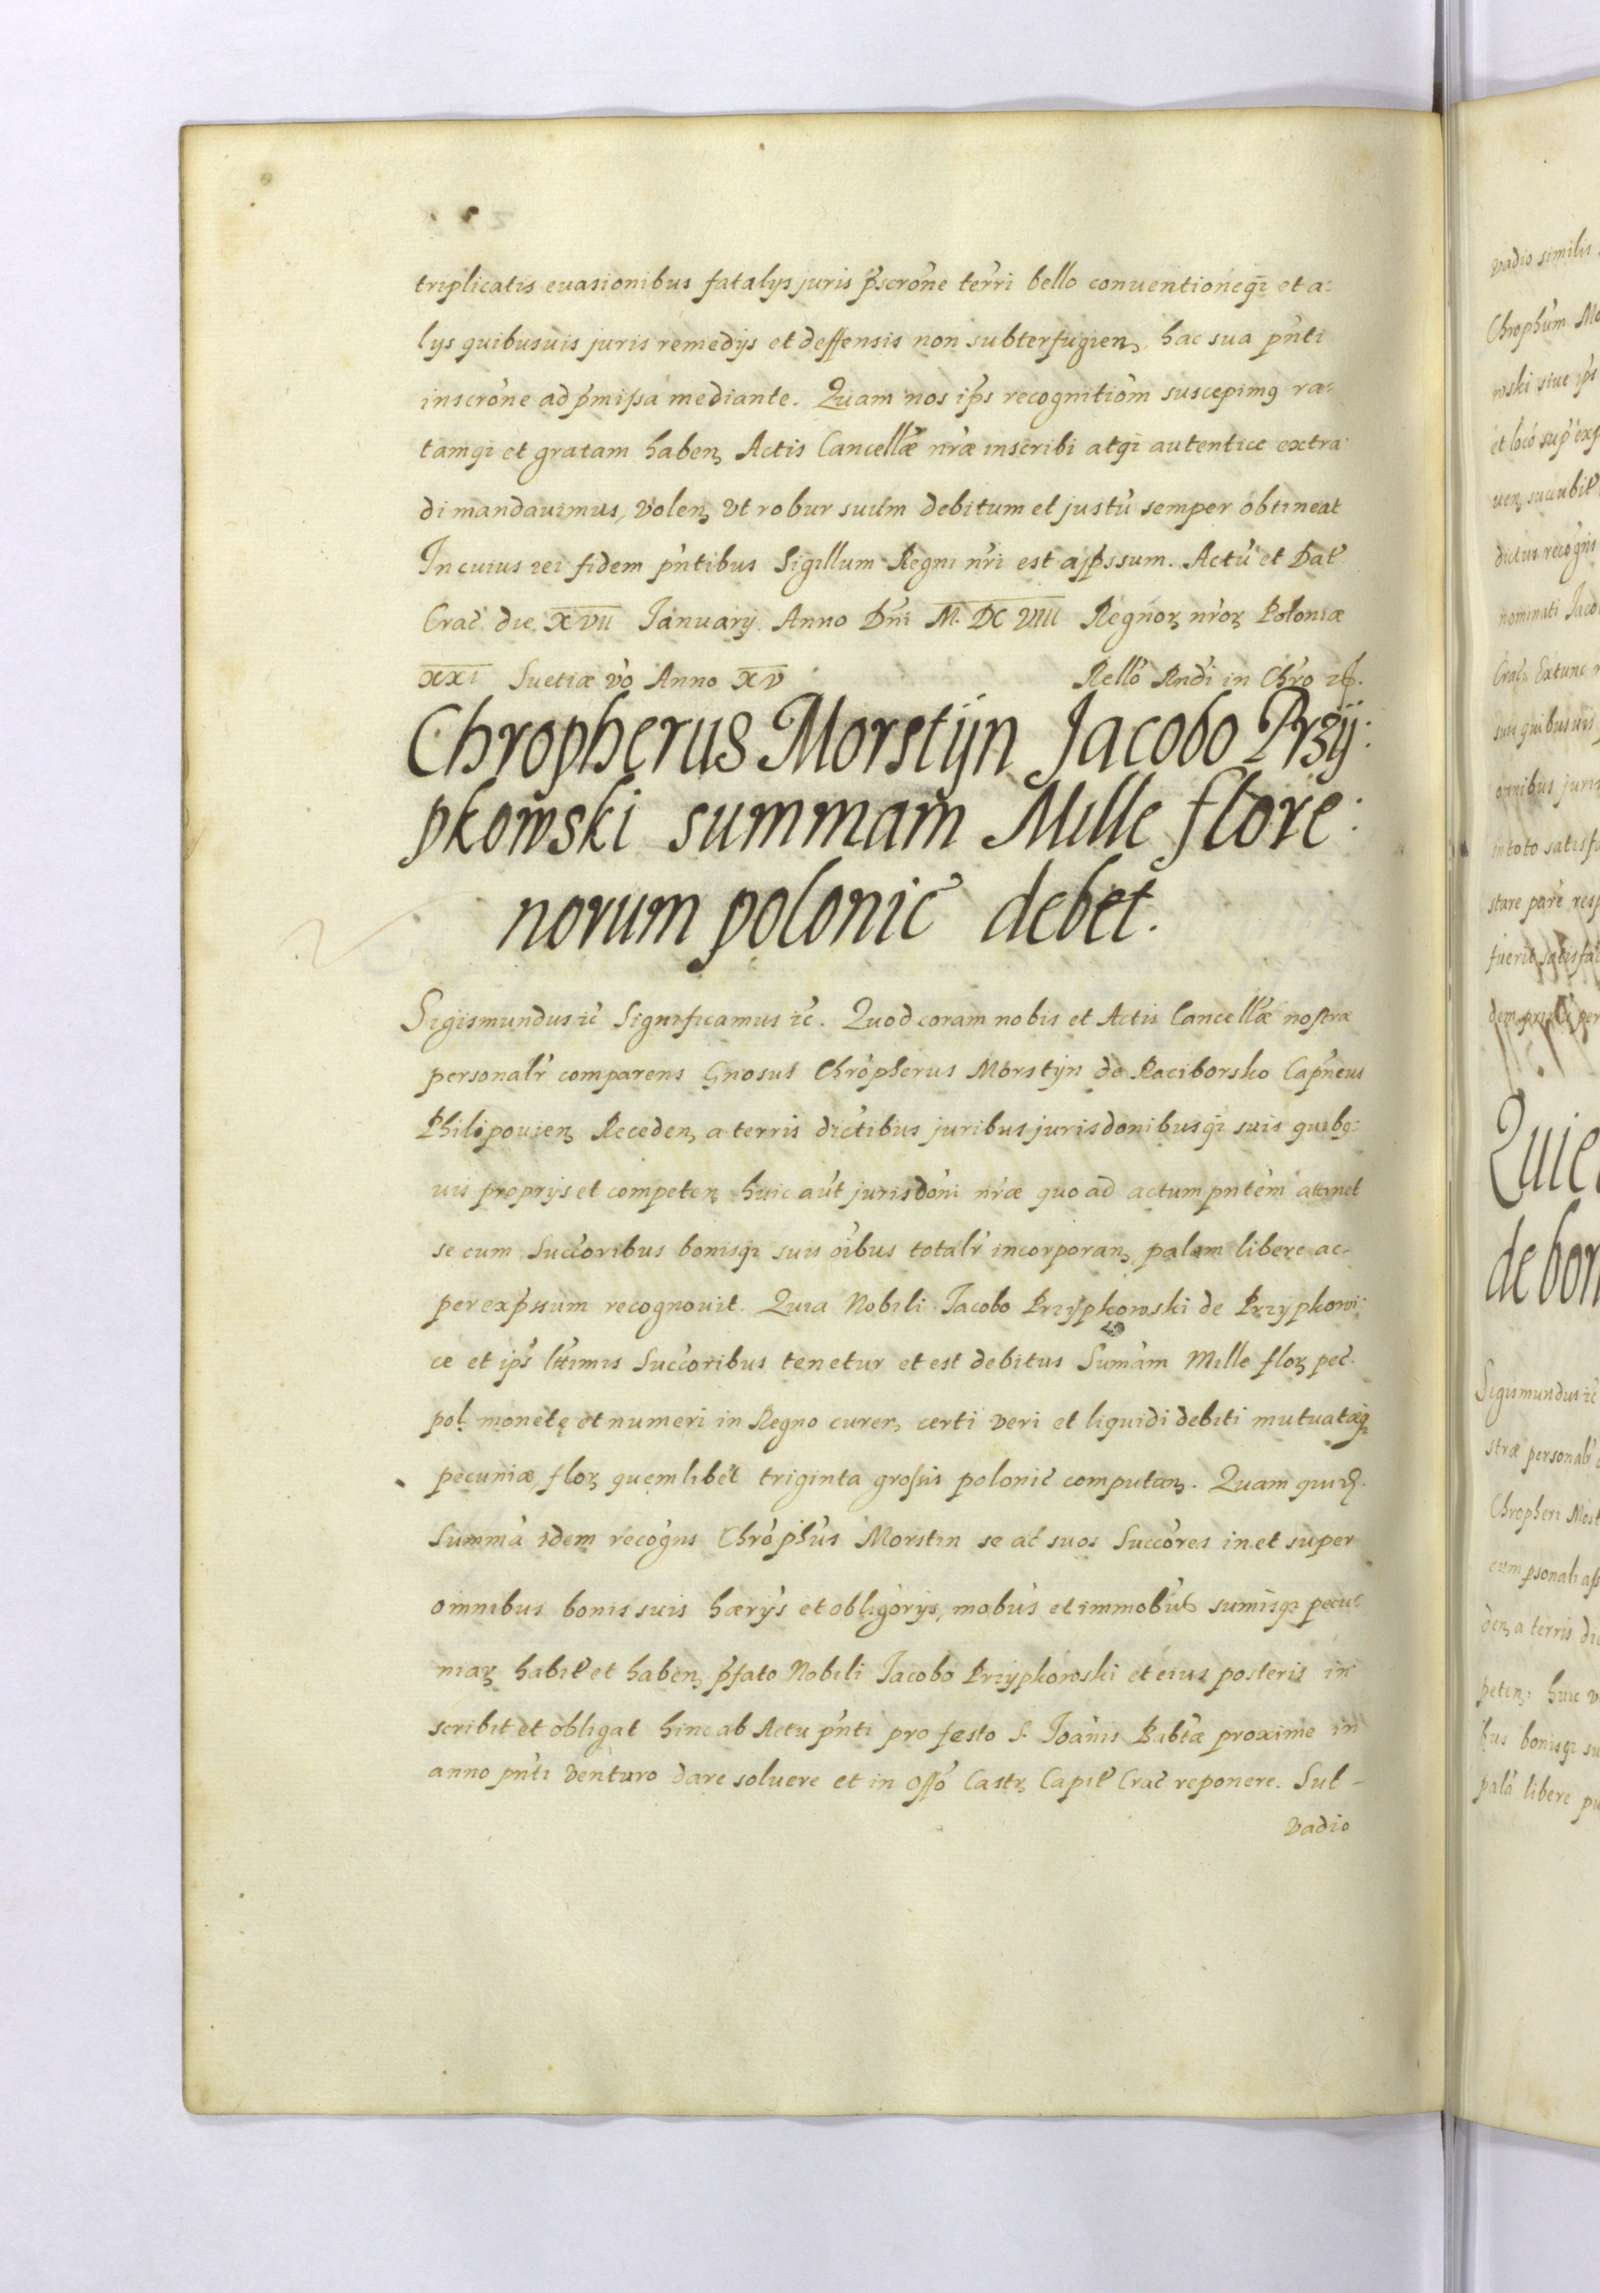 triplicatis euasionibus fatalys juris p̃scrõne terri bello conuentioneq̃ et a:
lys quibusuis juris remedijs et deffensis non subterfugienꝫ, hac sua pñti
inscrõne ad p̃missa mediante. Quam nos ip̃s recognitiom suscepimꝰ ra:
tamqꝫ et gratam habenꝫ Actis Cancellæ nr̃æ inscribi atqꝫ autentice extra
di mandauimus, volenꝫ vt robur suum debitum et justũ semper obtineat
In cuius rei fidem pñtibus Sigillum Regni nr̃i est app̃ssum. Actũ et Dat̃
Crac̃ die XVII Ianuarij Anno Dñi M. DC VIII Regnoꝝ nr̃oꝝ Poloniæ
XXI Suetiæ vo Anno XV Rello Rndi in Chro
Chropherus Morstijn Jacobo Przij:
pkowski summam Mille flore:
norum polonic̃ debet.
Sigismundus ꝛc̃ Significamus ꝛc̃. Quod coram nobis et Actis Cancellæ nostræ
personalr̃ comparens Gnosus Chropherus Morstijn de Raciborsko Capneus
Philipouienꝫ Recedenꝫ a terris dictibus juribus jurisdonibusqꝫ suis quibꝰ:
uis proprijs et competenꝫ huic aũt jurisdoni nr̃æ quo ad actum pñtem attinet
se cum Succoribus bonisqꝫ suis oĩbus totalr̃ incorporanꝫ palam libere ac
per exp̃ssum recognouit. Quia Nobili Jacobo Przijpkowski de Przypkowi:
ce et ip̃s lt̃imis Succoribus tenetur et est debitus Sumam Mille floꝝ pec̃.
pol̃ monetę et numeri in Regno curenꝫ certi veri et liquidi debiti mutuatæqꝫ
pecuniæ, floꝝ quemlibet triginta grossis polonic̃ computanꝫ. Quam quidꝫ
Summã idem recogns Chrophũs Morstin se ac suos Succores in et super
omnibus bonis suis hærijs et obligorijs, mobũs et immobũs sumisqꝫ pecu:
niaꝝ habit̃ et habenꝫ p̃fato Nobili Jacobo Przijpkowski et eius posteris in
scribit et obligat hinc ab Actu pñti pro festo S. Joãnis Babtæ proxime in
anno pñti venturo dare soluere et in Offo Castrꝫ Capit̃ Crac̃ reponere. Sub
vadio
vadio similis
Chrophum Mo
wski siue ip̃s
et loco sup exp
dictus recogns
nominati Jaco
Crac̃ Extunc
suis quibusuis
omnibus juris
in toto satisfa
stare pare resp
fuerit satisfac
Quie
de bon
Sigismundus ꝛc̃
stræ personalr̃
Chropheri Most
cum psonali ass
denꝫ a terris di
petenꝫ huic v
bus bonisqꝫ su
palã libere pu